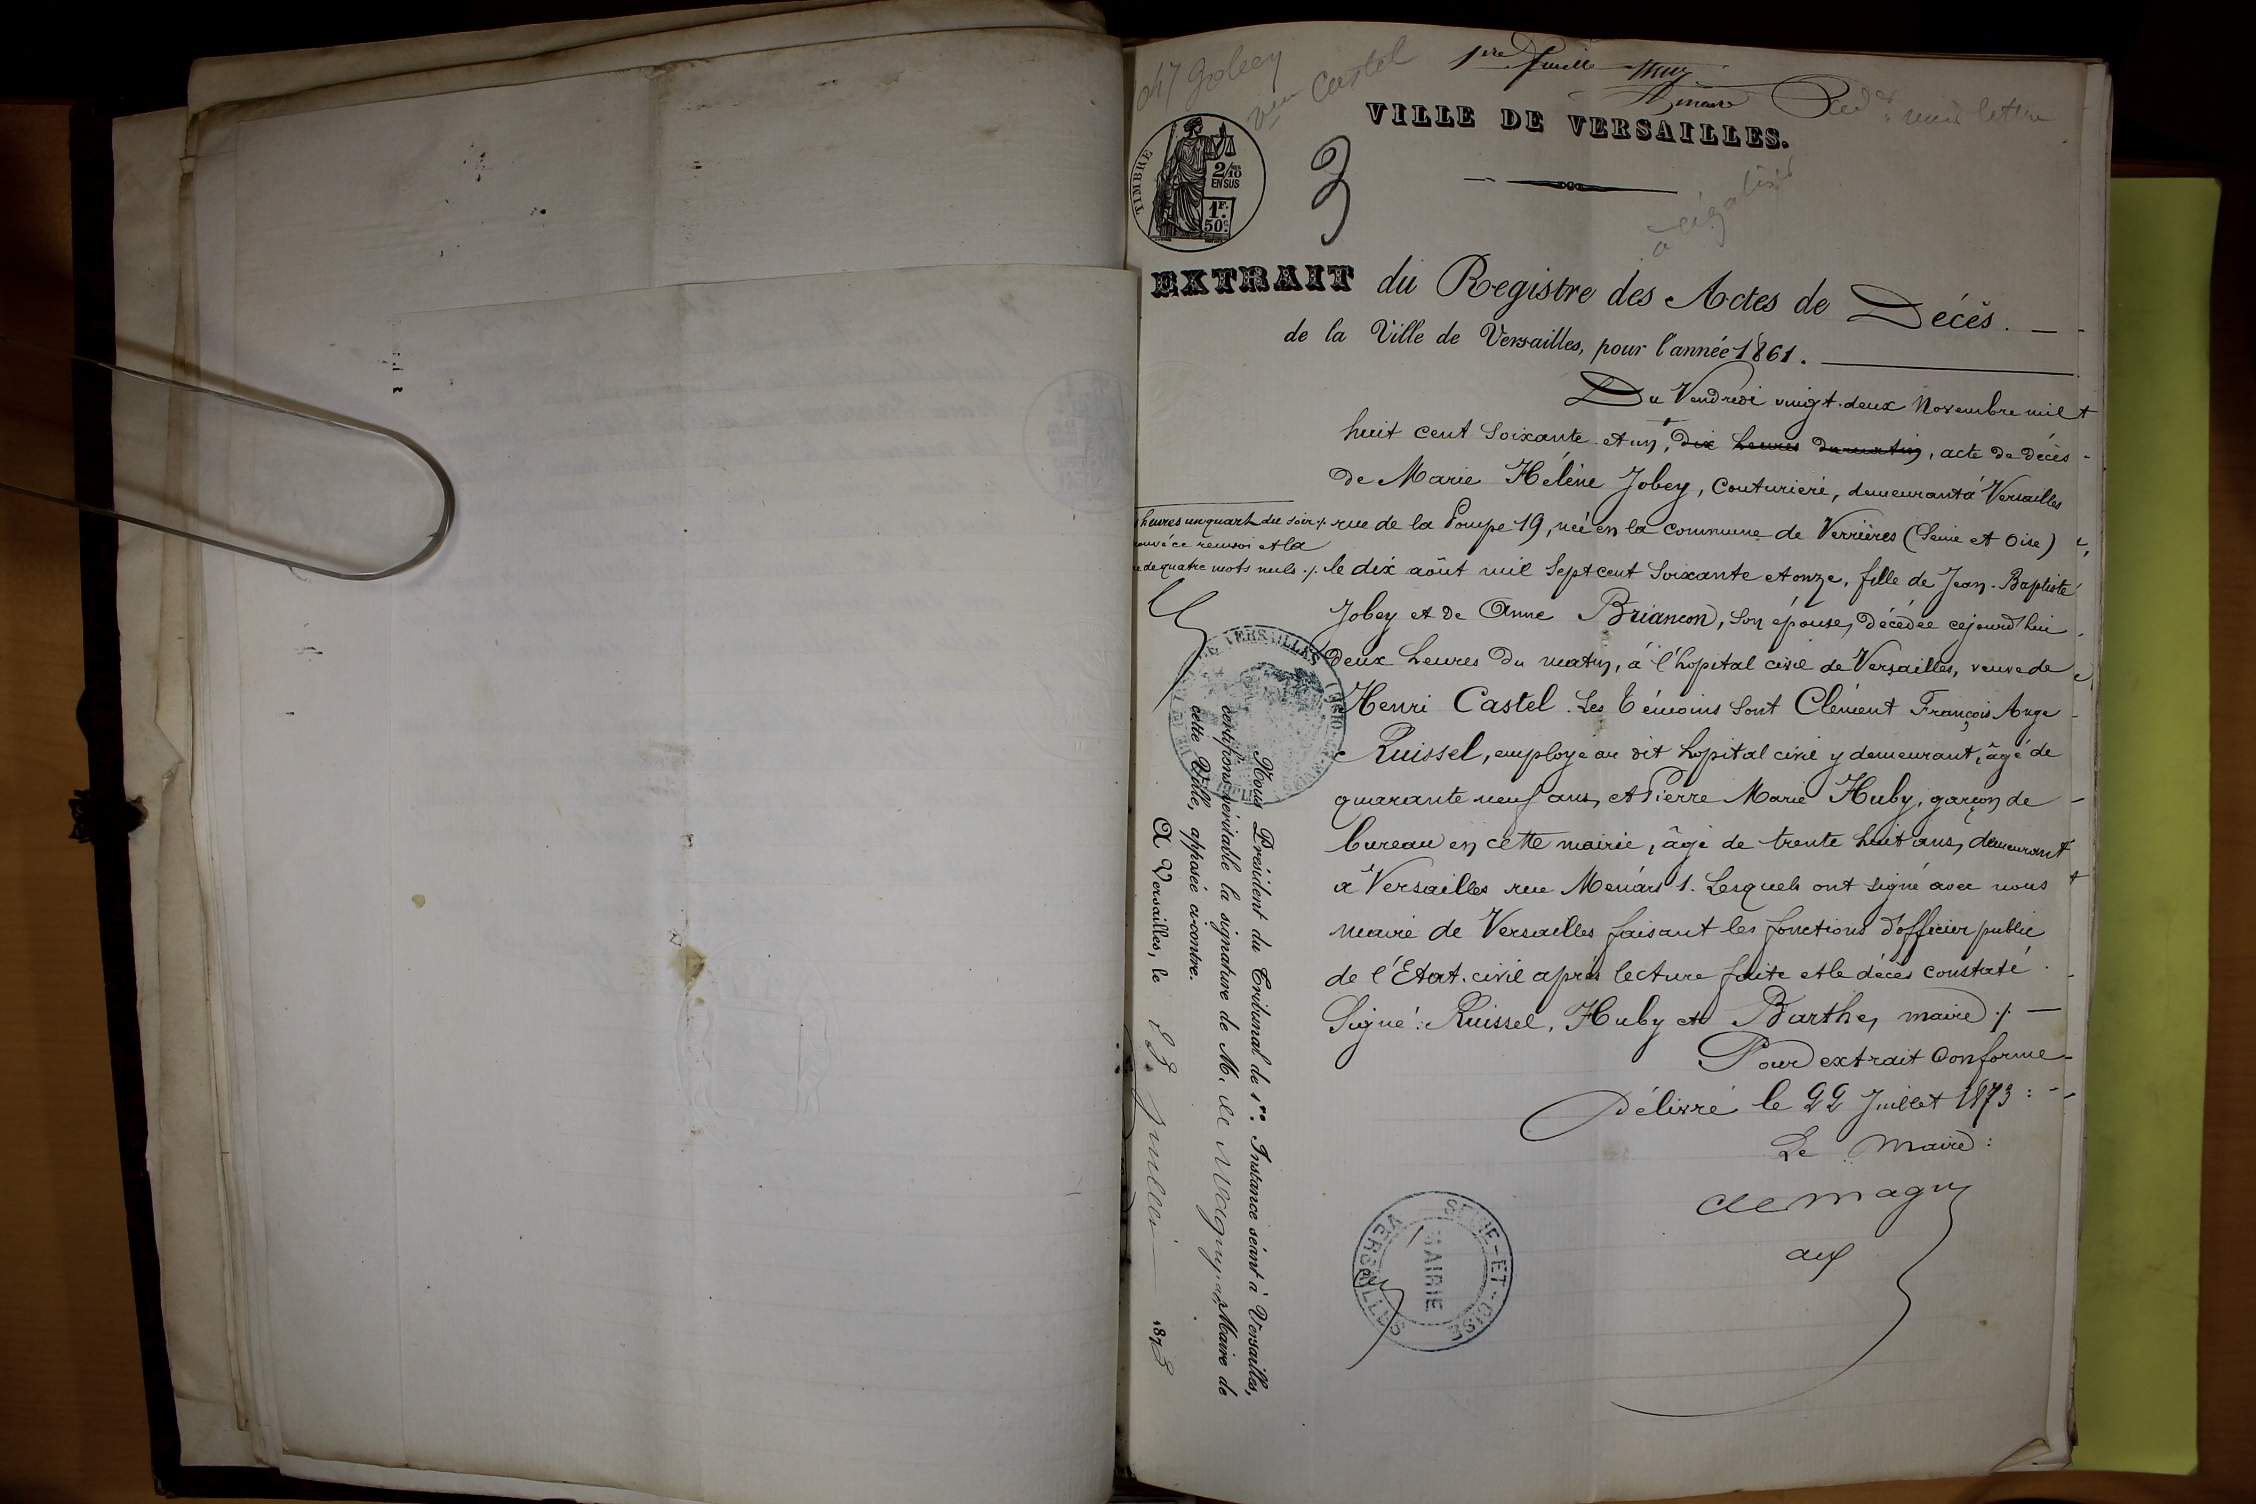 1re feuille
Jobey
Vve Castel
VILLE DE VERSAILLES.
TIMBRE
2/10 EN SUS
1F. 50c
3
à légaliser
EXTRAIT du Registre des Actes de Décès.
de la Ville de Versailles, pour l'année 1861.
Du Vendredi vingt-deux Novembre mil
huit cent soixante et un, dix heures du matin, acte de décès
de Marie Hélène Jobey, Couturière, demeurant à Versailles
rue de la Pompe 19, née en la commune de Verrières (Seine et Oise)
le dix août mil sept cent soixante et onze, fille de Jean-Baptiste
Jobey et de Anne Briancon, son épouse, décédée cejourd'hui
deux heures du matin, à l'hopital civil de Versailles, veuve de
Henri Castel. Les témoins sont Clément François Ange
Ruissel, employé au dit hopital civil y demeurant, âgé de
quarante neuf ans, et Pierre Marie Huby, garçon de
bureau en cette mairie, âgé de trente huit ans, demeurant
à Versailles rue Ménars 1. Lesquels ont signé avec nous
maire de Versailles faisant les fonctions d'officier public
de l'Etat-civil après lecture faite et le décès constaté.
Signé: Ruissel, Huby et Barthe, maire ./.
Pour extrait Conforme
Délivré le 22 Juillet 1873:
Le Maire:
heures un quart du soir ./.
ce renvoi et la
de quatre mots nuls ./.
Nous Président du Tribunal de 1re Instance séant à Versailles,
certifions véritable la signature de M. de Magny adj. Maire de
cette Ville, apposée ci-contre.
A Versailles, le 23 Juillet 1873
SEINE-ET-OISE
MAIRIE
VERSAILLES